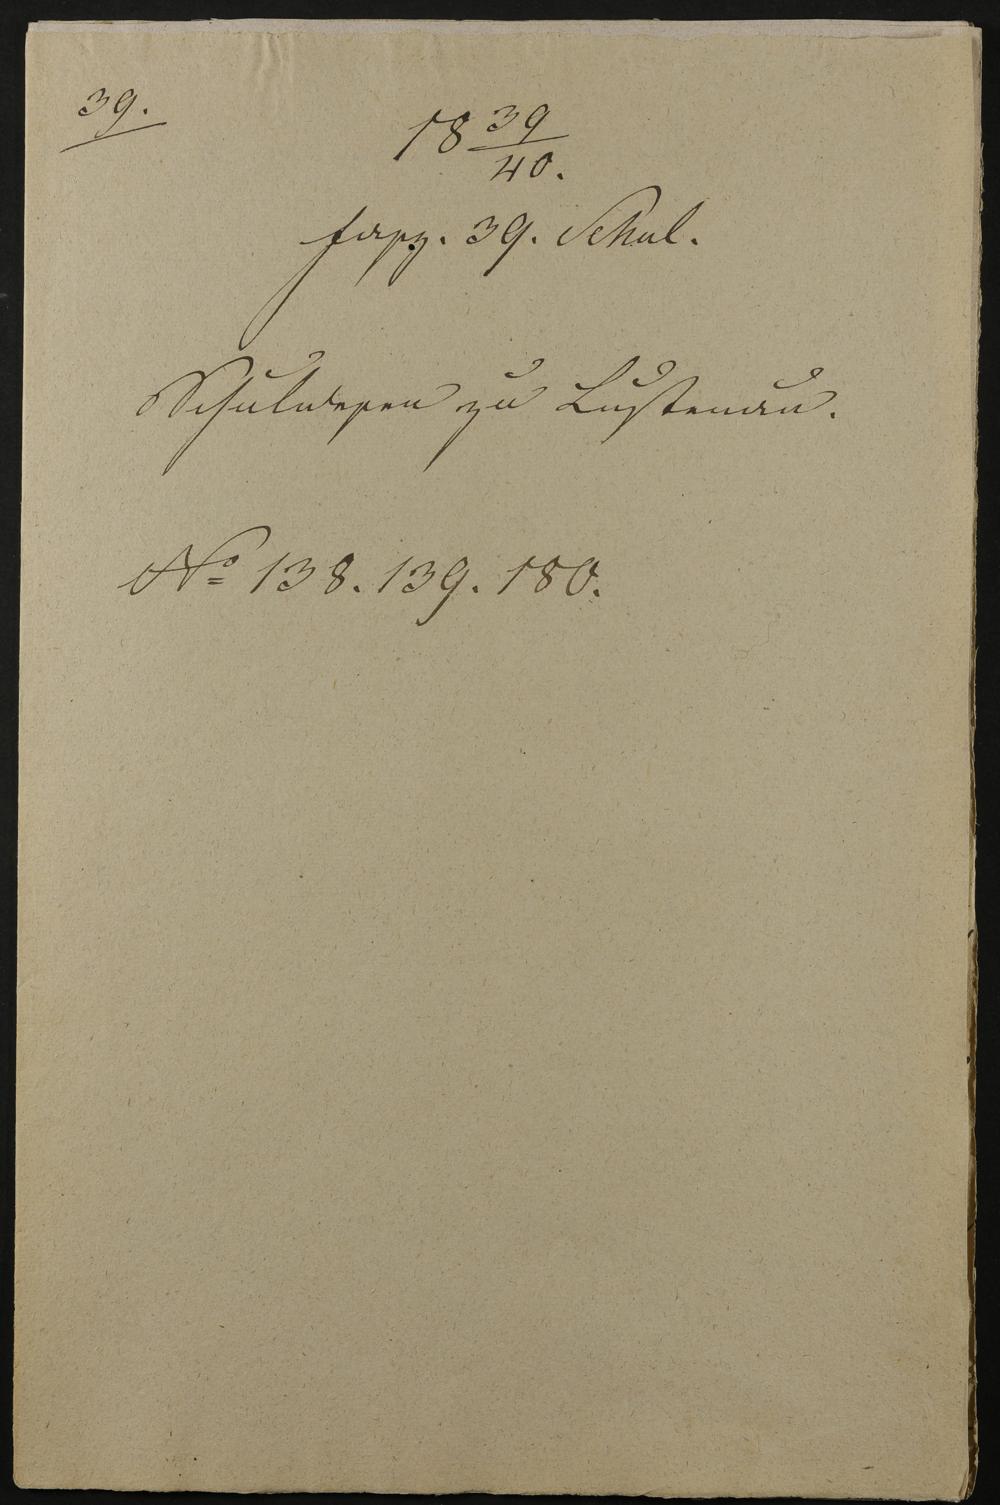 39.
18 39/40.
fasz. 39. Schul.
Schulwesen zu Lustenau.
No 138. 139. 180.